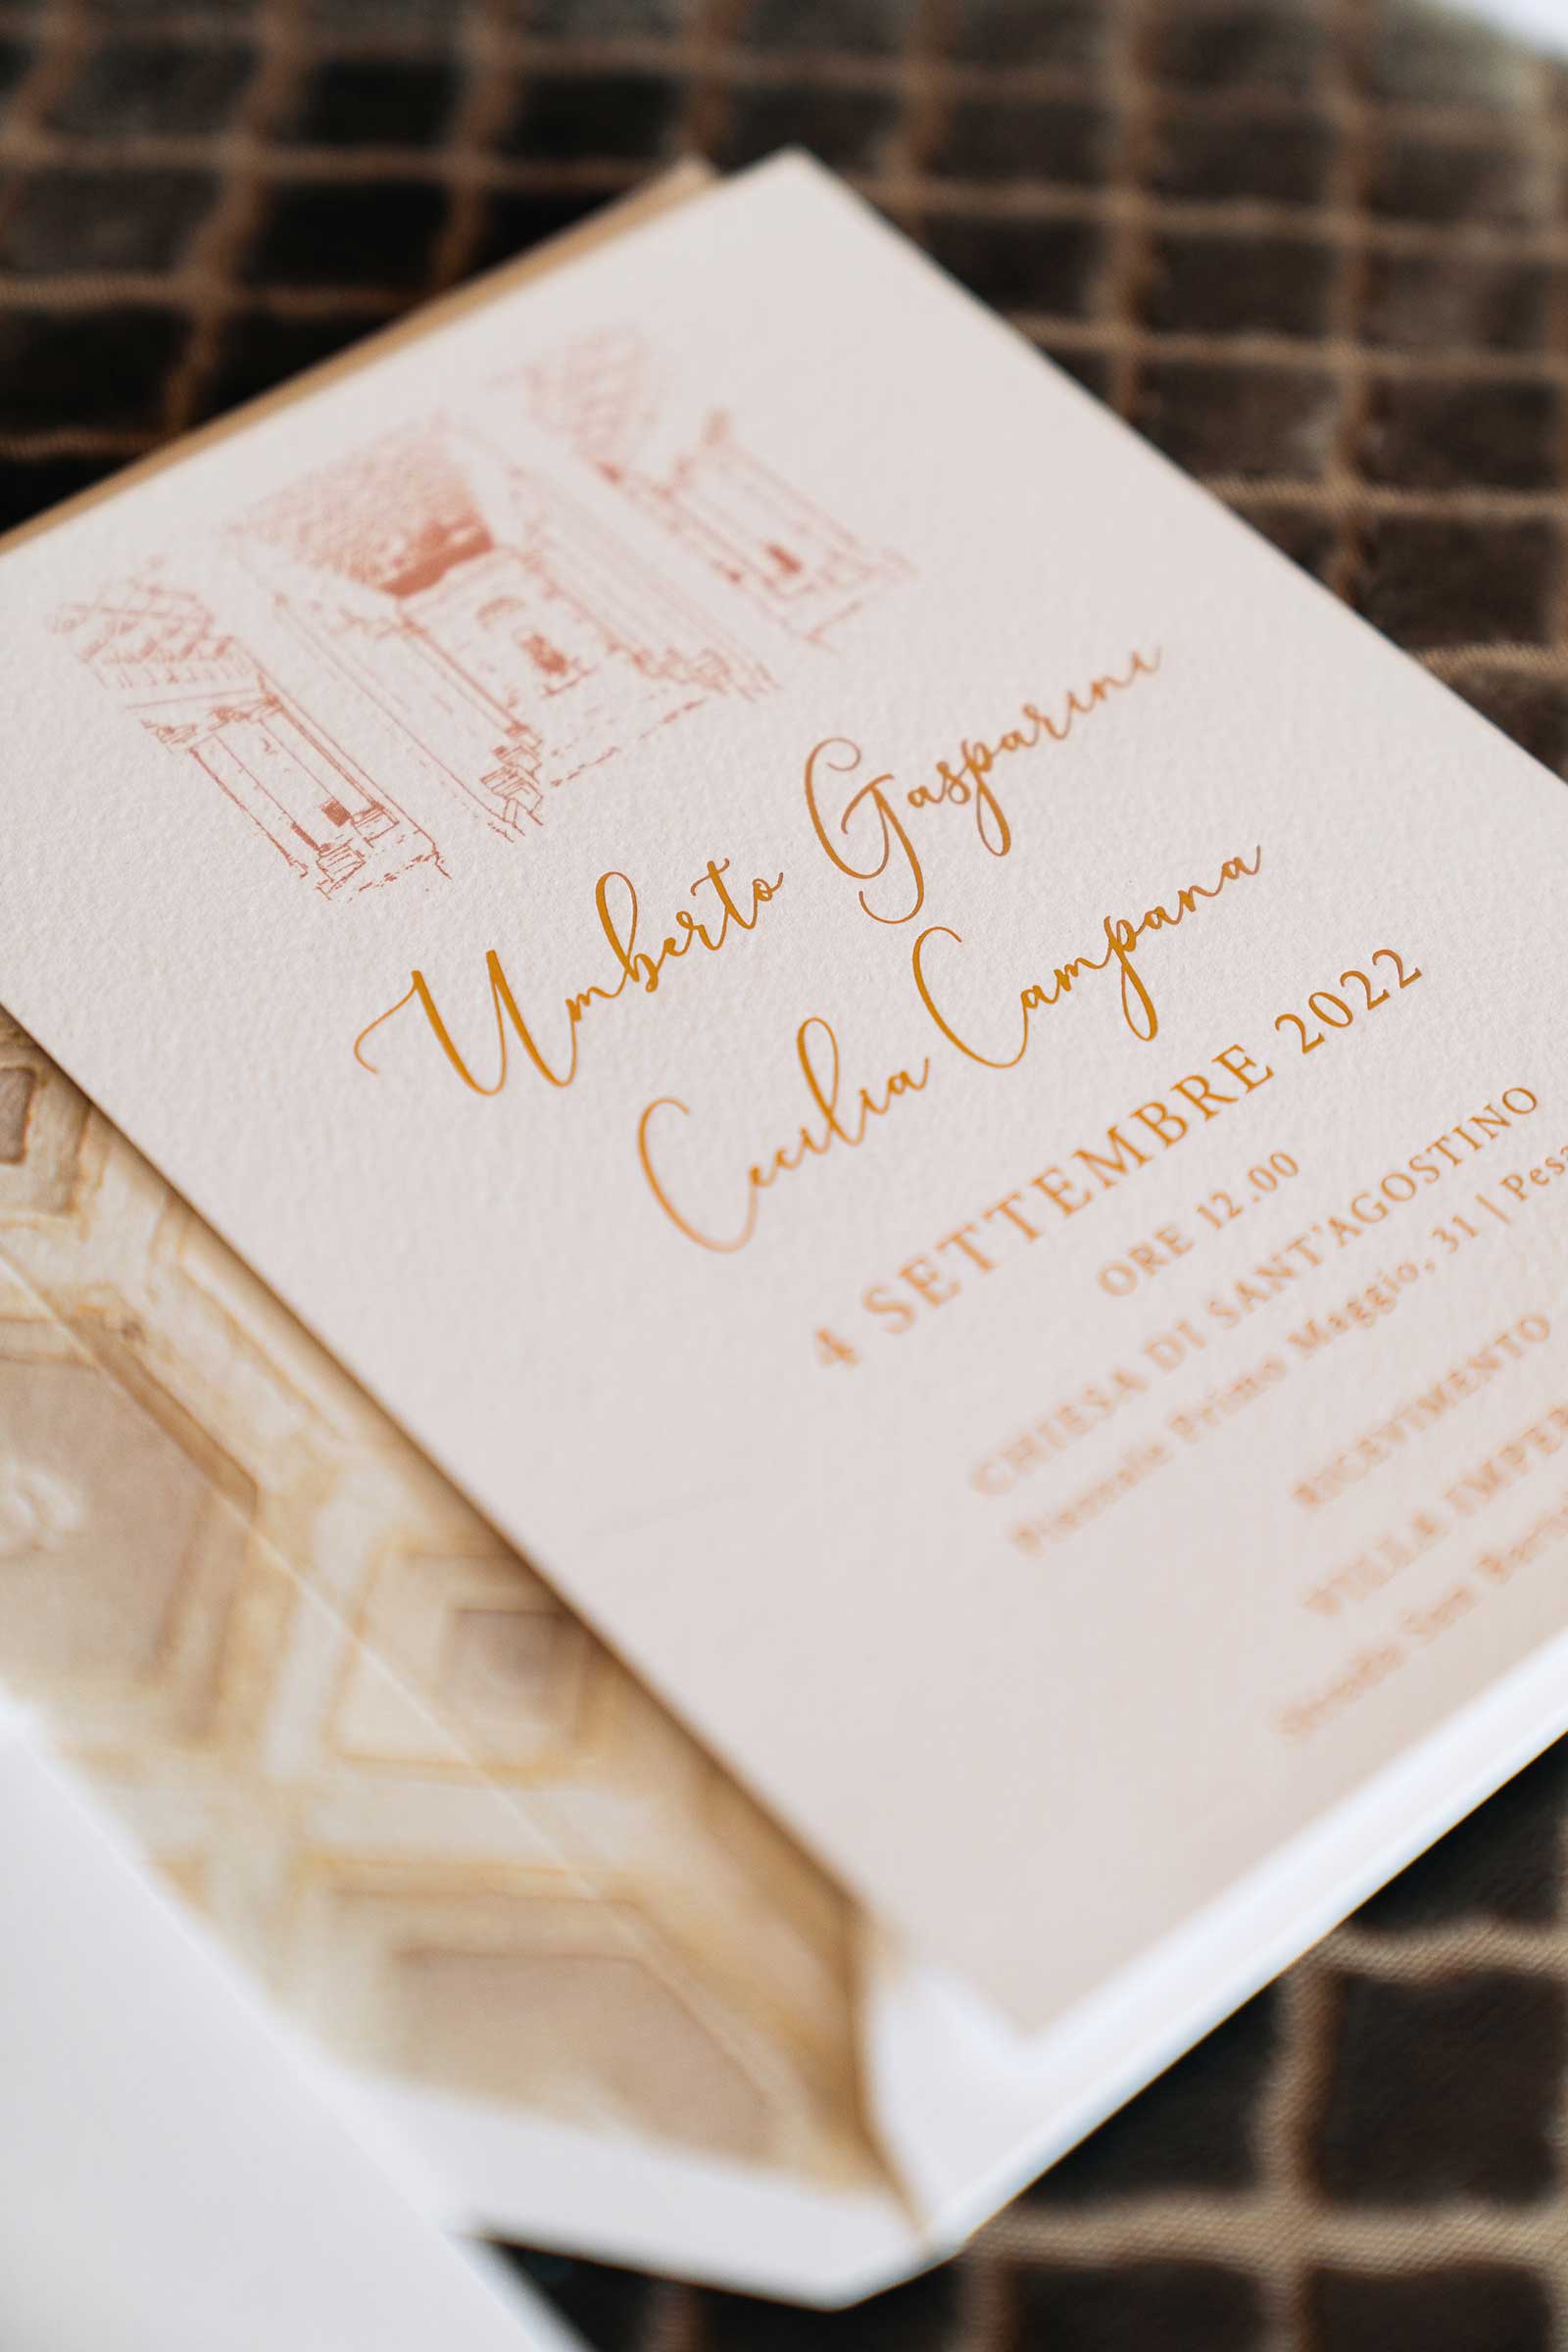 Umberto Gasparini
Cecilia Campana
4 SETTEMBRE 2022
ORE 12.00
CHIESA DI SANT'AGOSTINO
Piazzale Primo Maggio, 31 | Pesa
RICEVIMENTO
VILLA IMPER
San